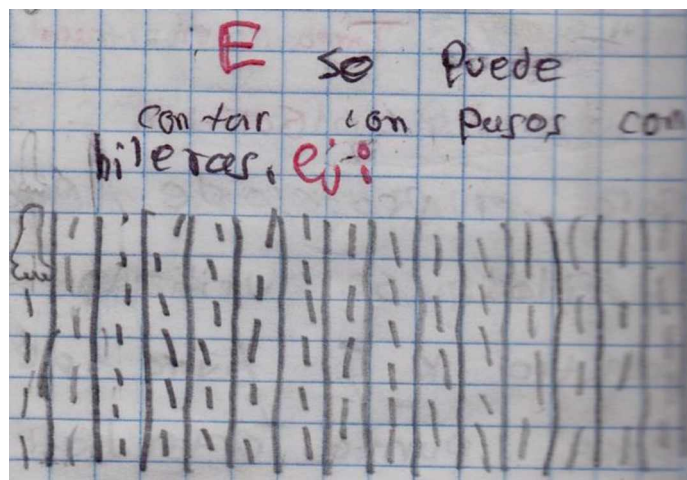 E se puede
contar con pasos con
hileras. ej: